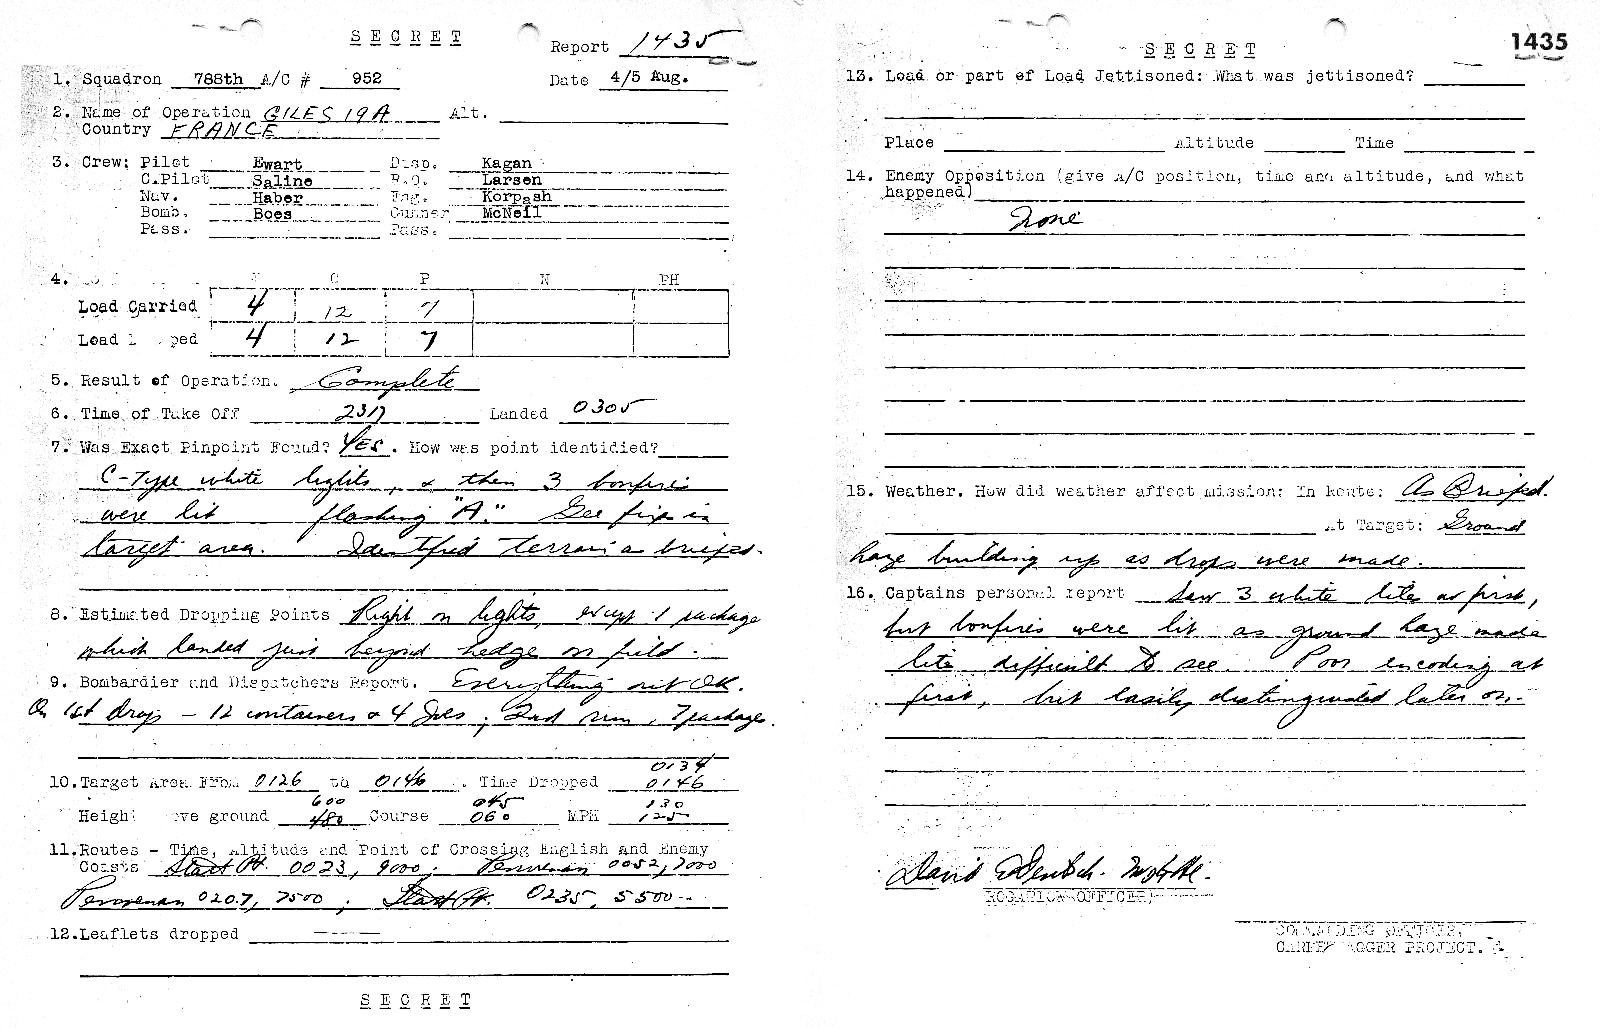 SECRET
Report 1435
1. Squadron 788th A/C # 952 Date 4/5 Aug.
2. Name of Operation GILES 19A Alt.
Country FRANCE
3. Crew: Pilot Ewart Disp. Kagan
C.Pilot Saline R.O. Larsen
Nav. Haber Eng. Korpash
Bomb. Boes Gunner McNeil
Pass. Pass.
4. C P N PH
Load Carried 4 12 7
Load ped 4 12 7
5. Result of Operation. Complete
6. Time of Take Off 2317 Landed 0305
7. Was Exact Pinpoint Found? YES. How was point identidied?
C-Type white lights, & then 3 bonfires
were lit flashing "A." Gee fix in
target area. Identified terrain as briefed.
8. Estimated Dropping Points Right on lights, except 1 package
which landed just beyond hedge on field.
9. Bombardier and Dispatchers Report. Everything out OK.
On 1st drop - 12 containers & 4 Joes; 2nd run, 7 packages.
0134
10. Target Area From 0126 to 0146. Time Dropped 0146
600 045 130
Heigh ve ground 480 Course 060 MPH 125
11. Routes - Time, Altitude and Point of Crossing English and Enemy
Coasts Start Pt. 0023, 9000; 0052, 7000
0207, 7500; Start Pt. 0235, 5500
12. Leaflets dropped
SECRET
SECRET
1435
13. Load or part of Load Jettisoned: What was jettisoned?
Place Altitude Time
14. Enemy Opposition (give A/C position, time and altitude, and what
happened)
None
15. Weather. How did weather affect mission: In Route: As Briefed.
At Target: Ground
haze building up as drops were made.
16. Captains personal report Saw 3 white lites at first,
but bonfires were lit as ground haze made
lite difficult to see. Poor encoding at
first, but easily distinguished later on.
David
ROGATION OFFICER)
COMMANDING OFFICER,
CARPET AGGER PROJECT.